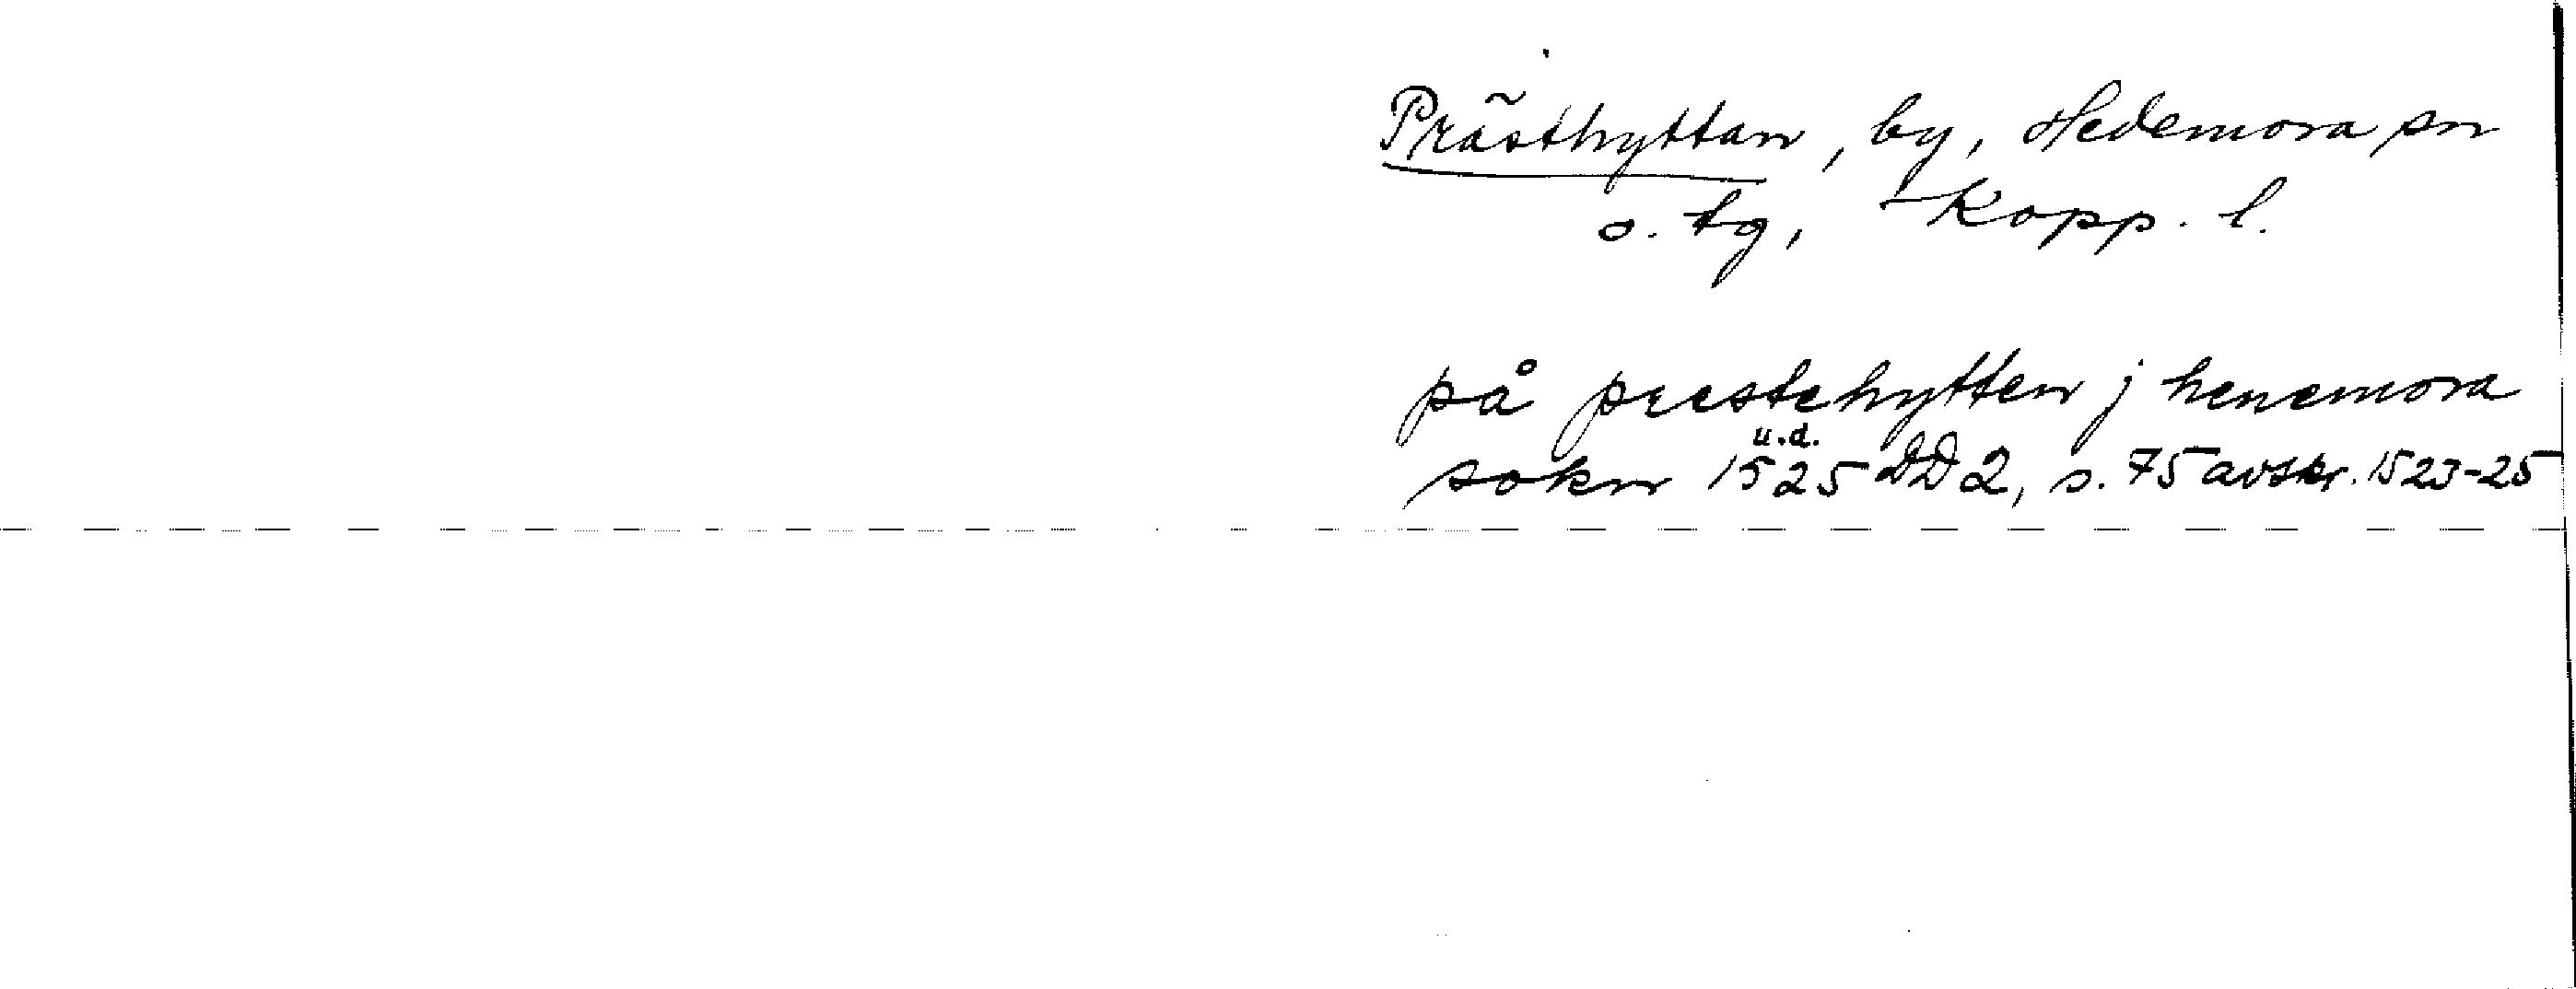 Prästhyttan, by, Hedemora sn
o. tg, Kopp. l.
på prestehytten j henemora
sokn u.d. 1525 DD 2, s. 75 avskr. 1523-25